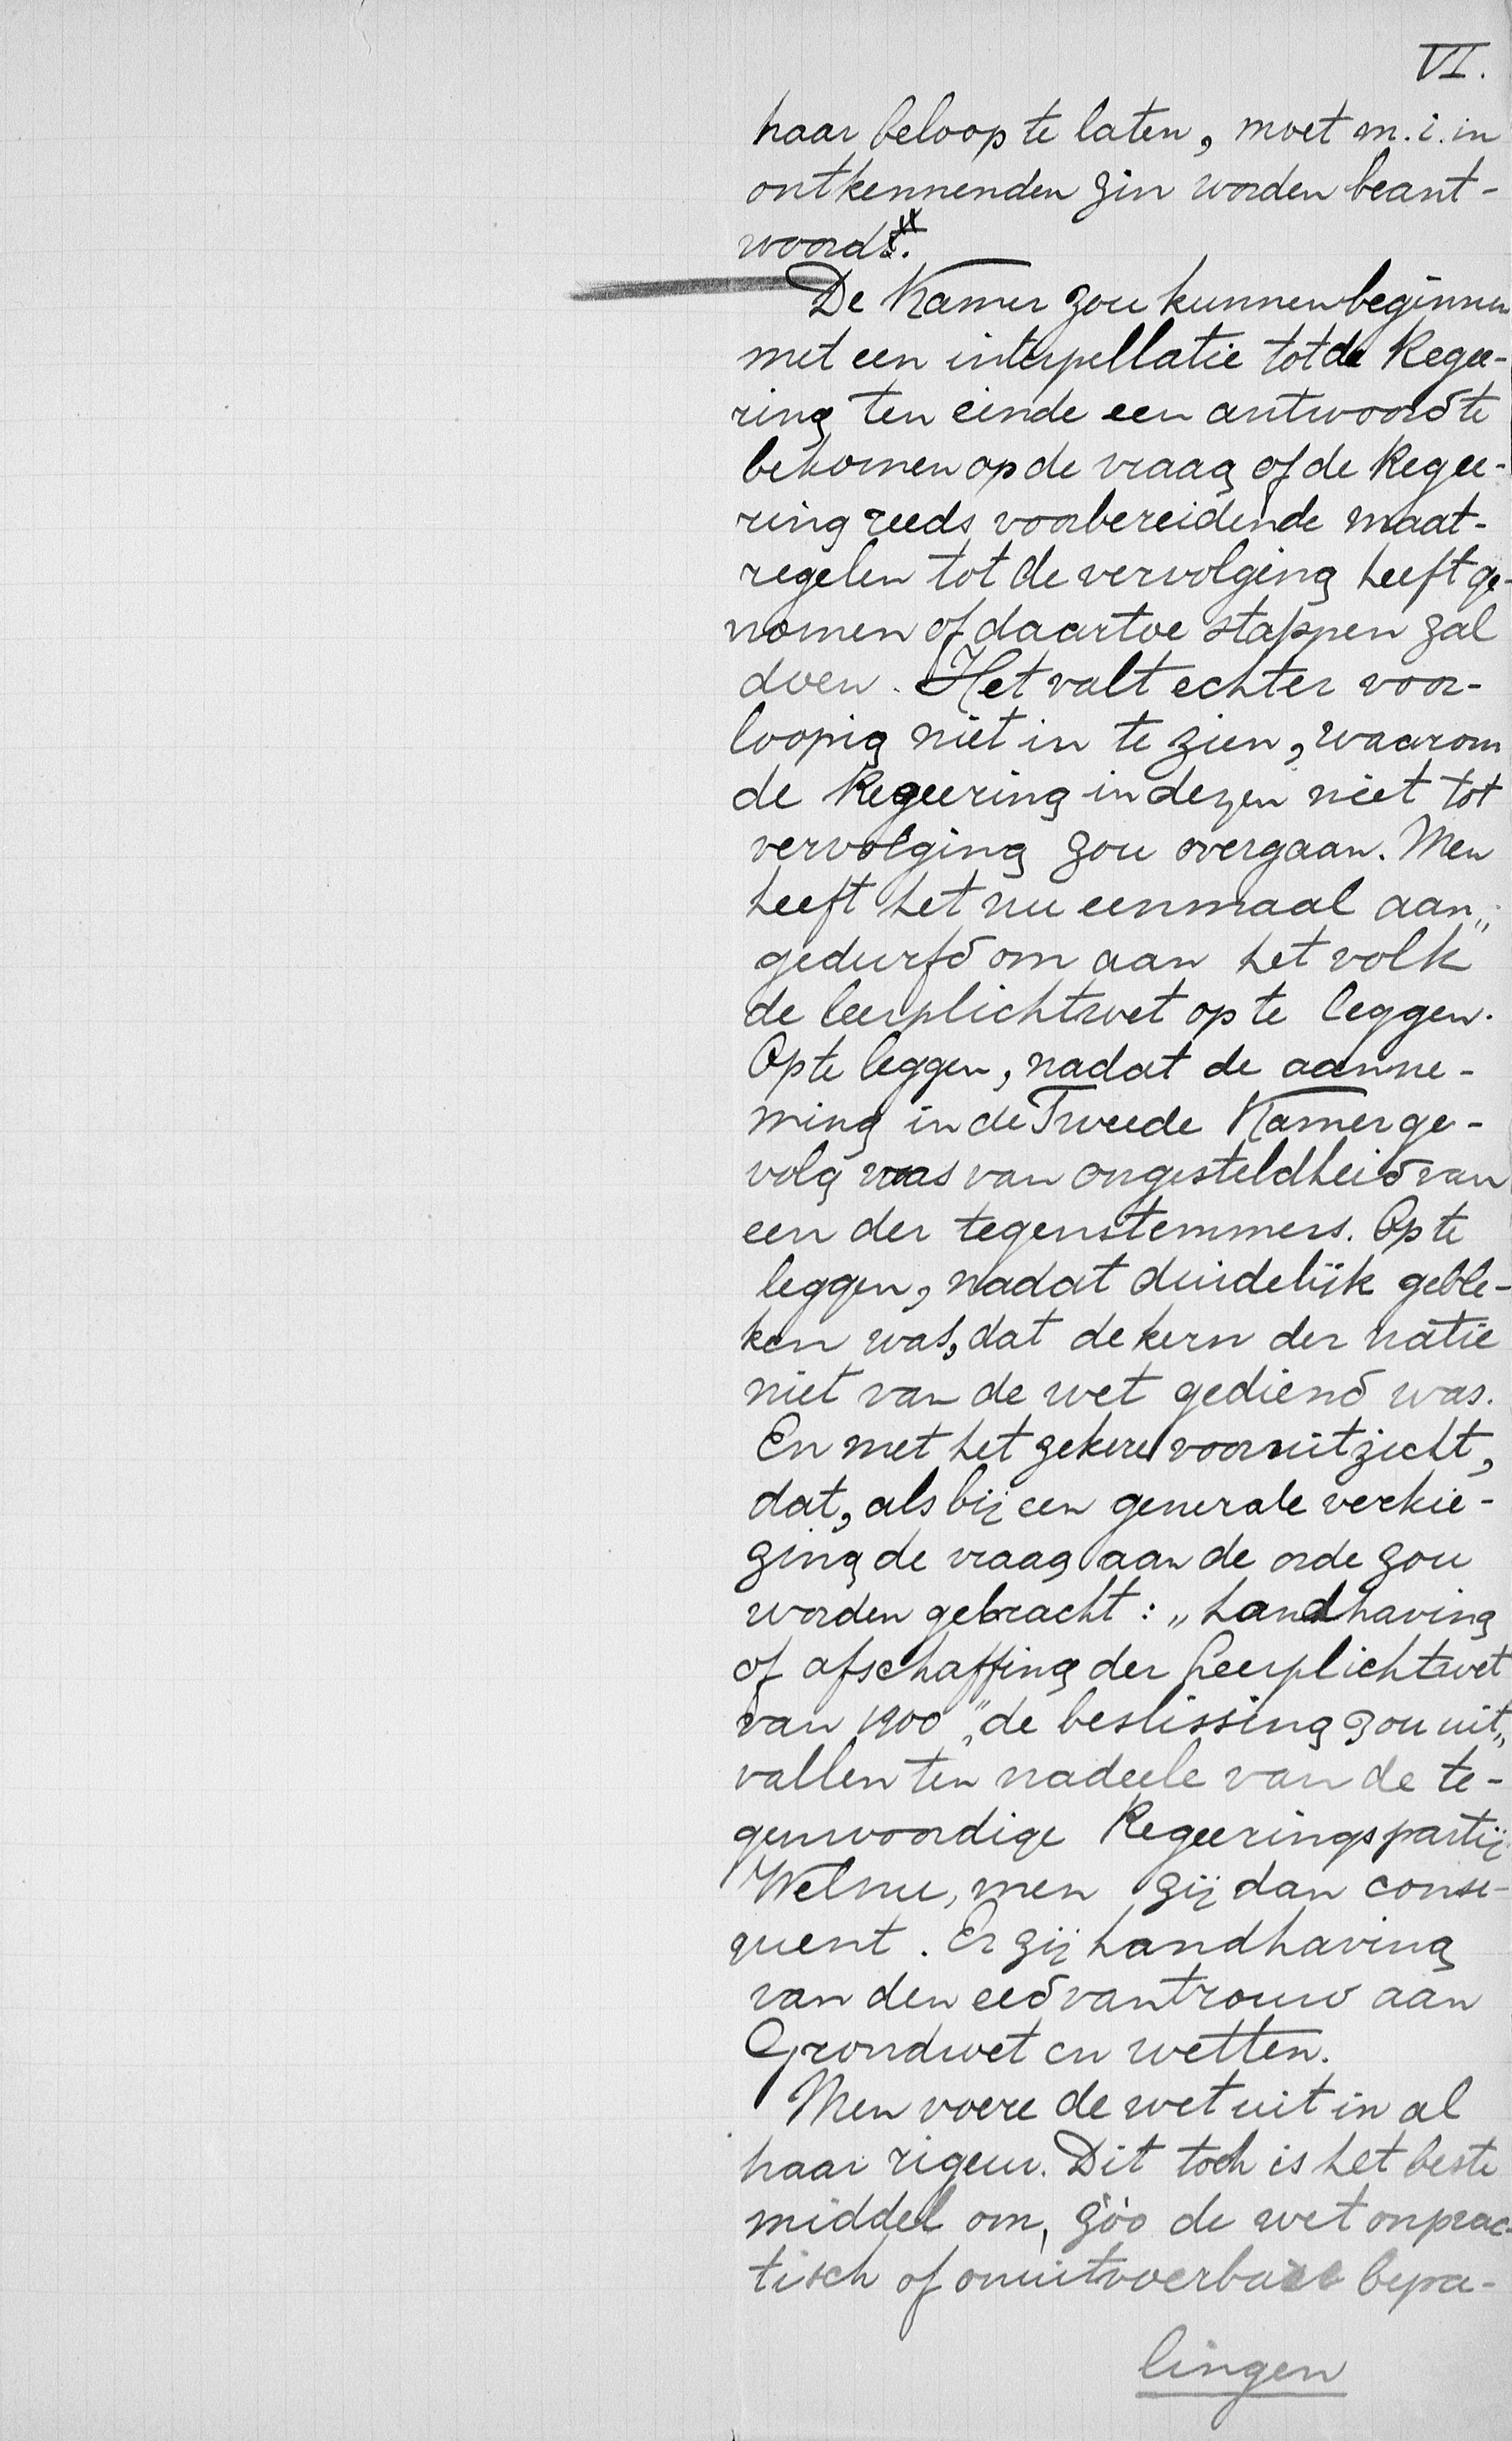 VI.
haar beloop te laten, moet m.i. in
ontkennenden zin worden beant-
woord.
De Kamer zou kunnen beginnen
met een interpellatie tot de Regee-
ring ten einde een antwoord te
bekomen op de vraag of de Regee-
ring reeds voorbereidende maat-
regelen tot de vervolging heeft ge-
nomen of daartoe stappen zal
doen. Het valt echter voor-
loopig niet in te zien, waarom
de Regeering in dezen niet tot
vervolging zou overgaan. Men
heeft het nu eenmaal aan„
gedurfd om aan het volk
de leerplichtwet op te leggen.
Op te leggen, nadat de aanne-
ming in de Tweede Kamer ge-
volg was van ongesteldheid van
een der tegenstemmers. Op te
leggen, nadat duidelijk geble-
ken was, dat de kern der natie
niet van de wet gediend was.
En met het zekere vooruitzicht,
dat, als bij een generale verkie-
zing de vraag aan de orde zou
worden gebracht: „handhaving
of afschaffing der Leerplichtwet
van 1900", de beslissing zou uit„
vallen ten nadeele van de te-
genwoordige Regeeringspartij.
Welnu, men zij dan conse-
quent. Er zij handhaving
van den eed van trouw aan
Grondwet en wetten.
Men voere de wet uit in al
haar rigeur. Dit toch is het beste
middel om, zóó de wet onprac-
tisch of onuitvoerbare bepa-
lingen